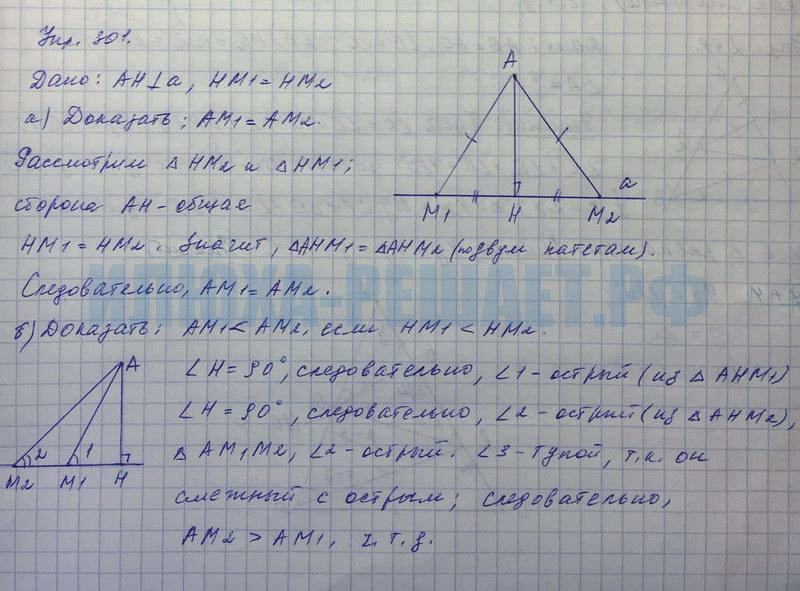 Упр. 301.
Дано: AH⊥a, HM1 = HM2
а) Доказать: AM1 = AM2.
Рассмотрим △ HM2 и △ HM1;
сторона AH - общая
HM1 = HM2. Значит, △AHM1 = △AHM2 (по двум катетам).
Следовательно, AM1 = AM2.
A
a
M1 H M2
ИЛЮХА-РЕШАЕТ.РФ
б) Доказать: AM1 < AM2, если HM1 < HM2.
∠H = 90°, следовательно, ∠1 - острый (из △ AHM1)
∠H = 90°, следовательно, ∠2 - острый (из △ AHM2),
△ AM1M2, ∠2 - острый. ∠3 - тупой, т.к. он
смежный с острым; следовательно,
AM2 > AM1, ч.т.д.
A
2 1
M2 M1 H